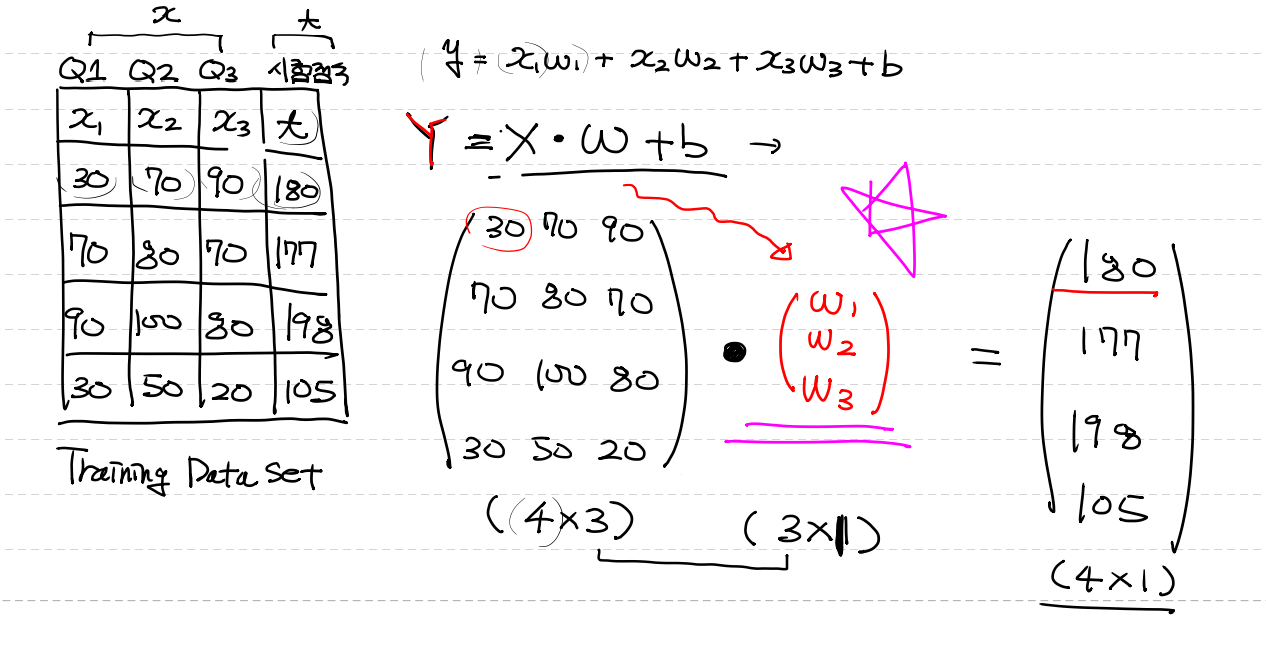 x t
Q1 Q2 Q3 시험점수
x₁ x₂ x₃ t
30 70 90 180
70 80 70 177
90 100 80 198
30 50 20 105
Training Data Set
y = x₁w₁ + x₂w₂ + x₃w₃ + b
Y = X · W + b →
30 70 90
70 80 70
90 100 80
30 50 20
(4×3)
·
w₁
w₂
w₃
(3×1)
=
180
177
198
105
(4×1)